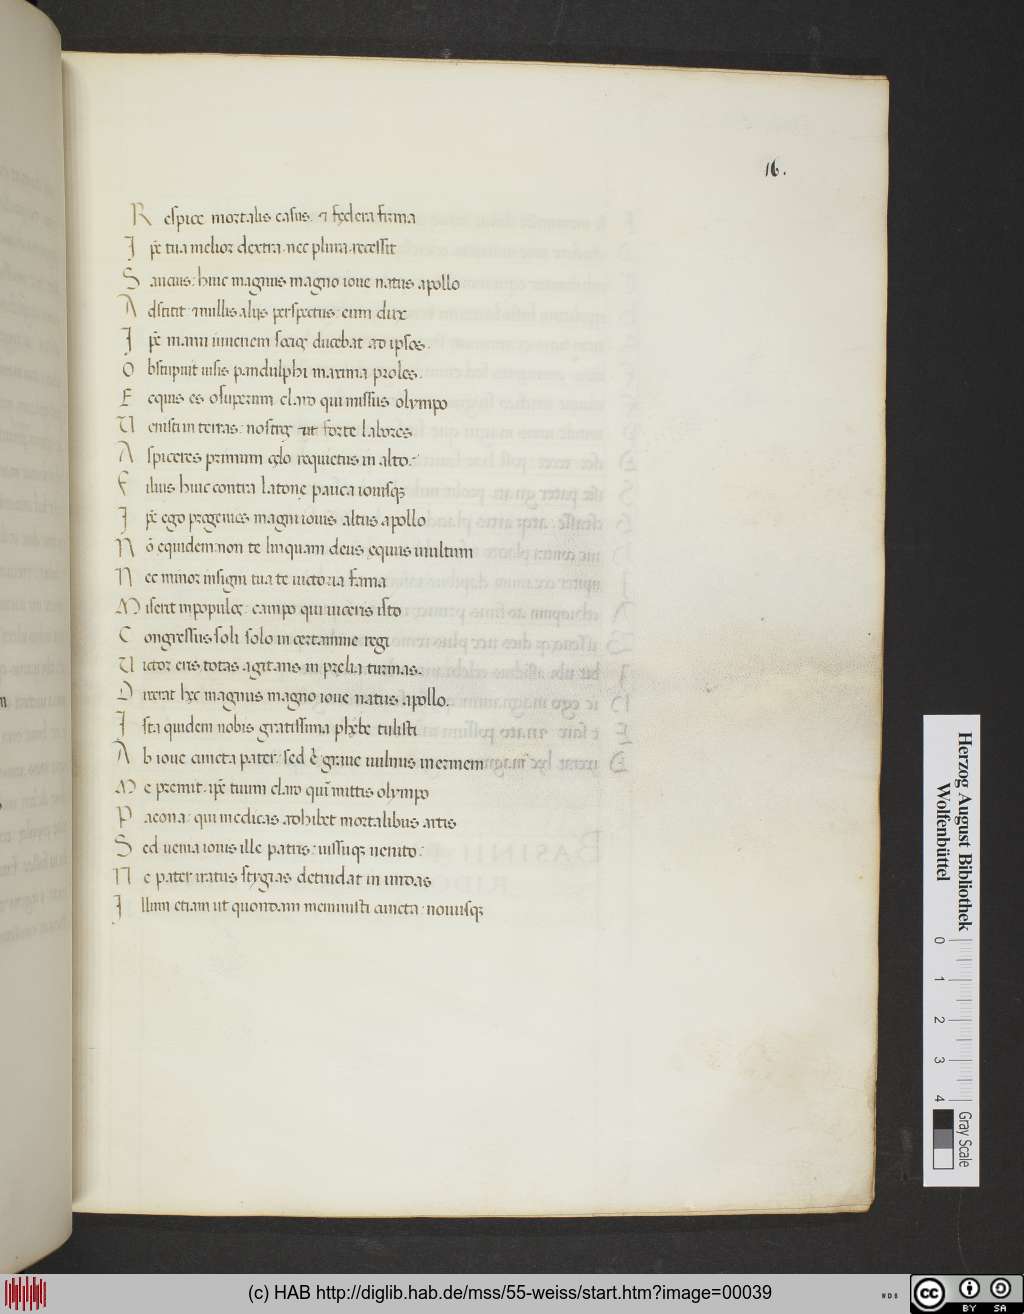 16.
R espice mortalis casus. ⁊ fędera firma
I pẽ tua melior dextra. nec plura. recessit
S aucius: huic magnus magno ioue natus apollo
A dstitit: ⁊ multis alijs perspectus eum dux
I pẽ manu iuuenem sociꝗ ducebat ad ipsos.
O bstupuit uisis pandulphi maxima proles.
E equis es o superum claro qui missus olympo
U enisti in terras: nostrę ut forte labores
A spiceres primum cęlo requietus in alto:
F ilius huic contra latonę pauca iouisꝗ
I pẽ ego progenies magni iouis altus apollo
N õ equidem non te linquam deus ęquus inultum
N ec minor insigni tua te uictoria fama
M iserit in populos: campo qui uiceris isto
C ongressus soli solo in certamine regi
U ictor eris totas agitans in prelia turmas.
D ixerat hęc magnus magno ioue natus apollo.
I sta quidem nobis gratissima phębe tulisti
A b ioue cuncta pater. sed ẽ graue uulnus inermem
M e premit. ipẽ tuum claro qui mittis olympo
P aeona: qui medicas adhibet mortalibus artis
S ed uenia iouis ille patris: iussuꝗ uenito:
N e pater iratus stygias detrudat in undas
I llum etiam ut quondam meministi cuncta: nouusꝗ
BASINII
Herzog August Bibliothek
Wolfenbüttel
0 1 2 3 4
Gray Scale
(c) HAB http://diglib.hab.de/mss/55-weiss/start.htm?image=00039
WDB
cc BY SA